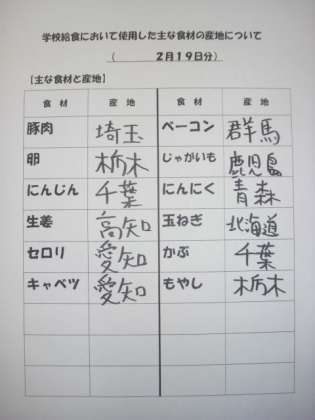 学校給食において使用した主な食材の産地について
（ 2月19日分）
【主な食材と産地】
食 材 産 地 食 材 産 地
豚肉 埼玉 ベーコン 群馬
卵 栃木 じゃがいも 鹿児島
にんじん 千葉 にんにく 青森
生姜 高知 玉ねぎ 北海道
セロリ 愛知 かぶ 千葉
キャベツ 愛知 もやし 栃木